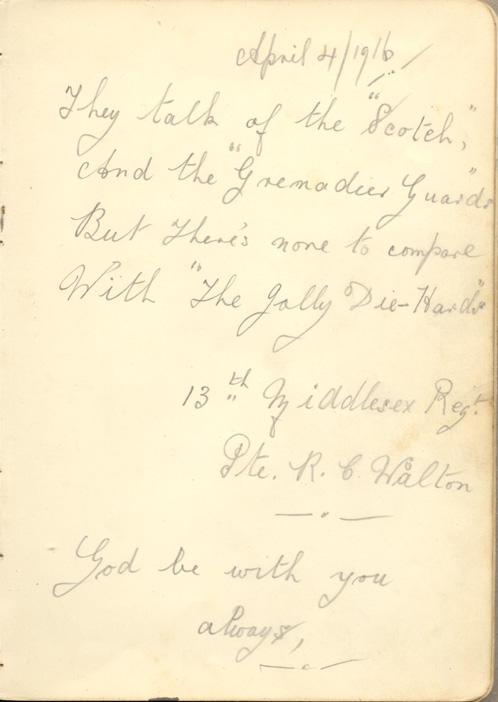 April 4/1916
They talk of the "Scotch,"
And the "Grenadier Guards"
But There's none to compare
With "The Jolly Die-Hards"
13th Middlesex Regt.
Pte. R. C. Walton
God be with you
always,